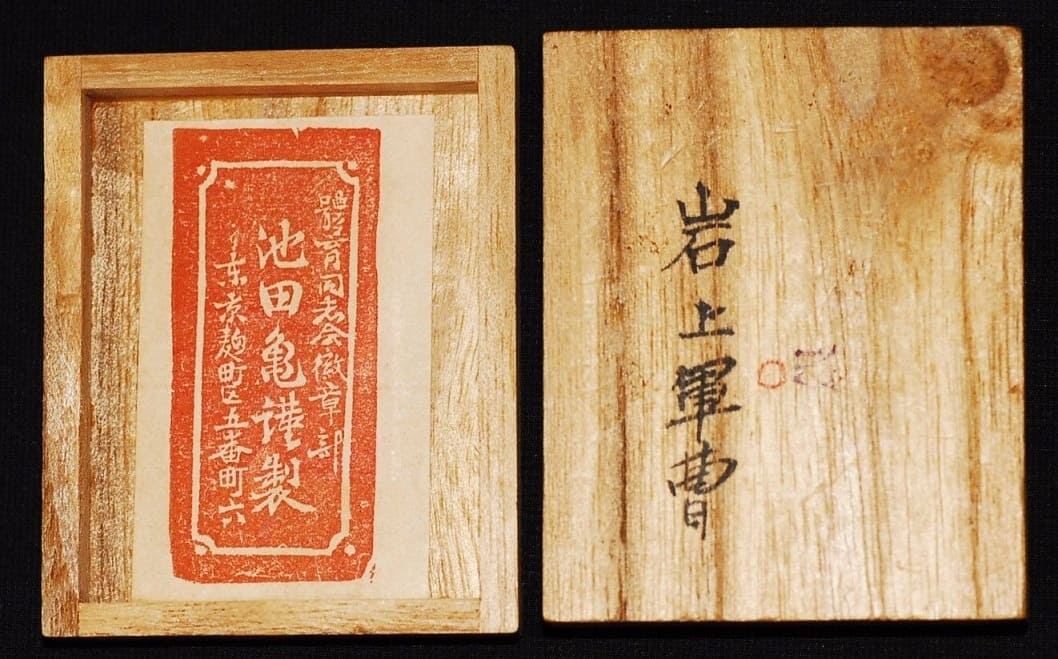 體育同志会徽章部
池田亀謹製
東京麹町区五番町六
岩上軍曹